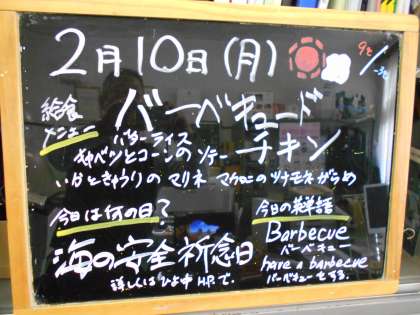 2月10日(月) 9℃/-3℃
給食メニュー
バーベキュードチキン
バターライス
キャベツとコーンのソテー
いかときゅうりのマリネ マカロニのツナモネがらめ
今日は何の日?
海の安全祈念日
詳しくはひよ中HPで.
今日の英単語
Barbecue
バーベキュー
have a barbecue
バーベキューをする.